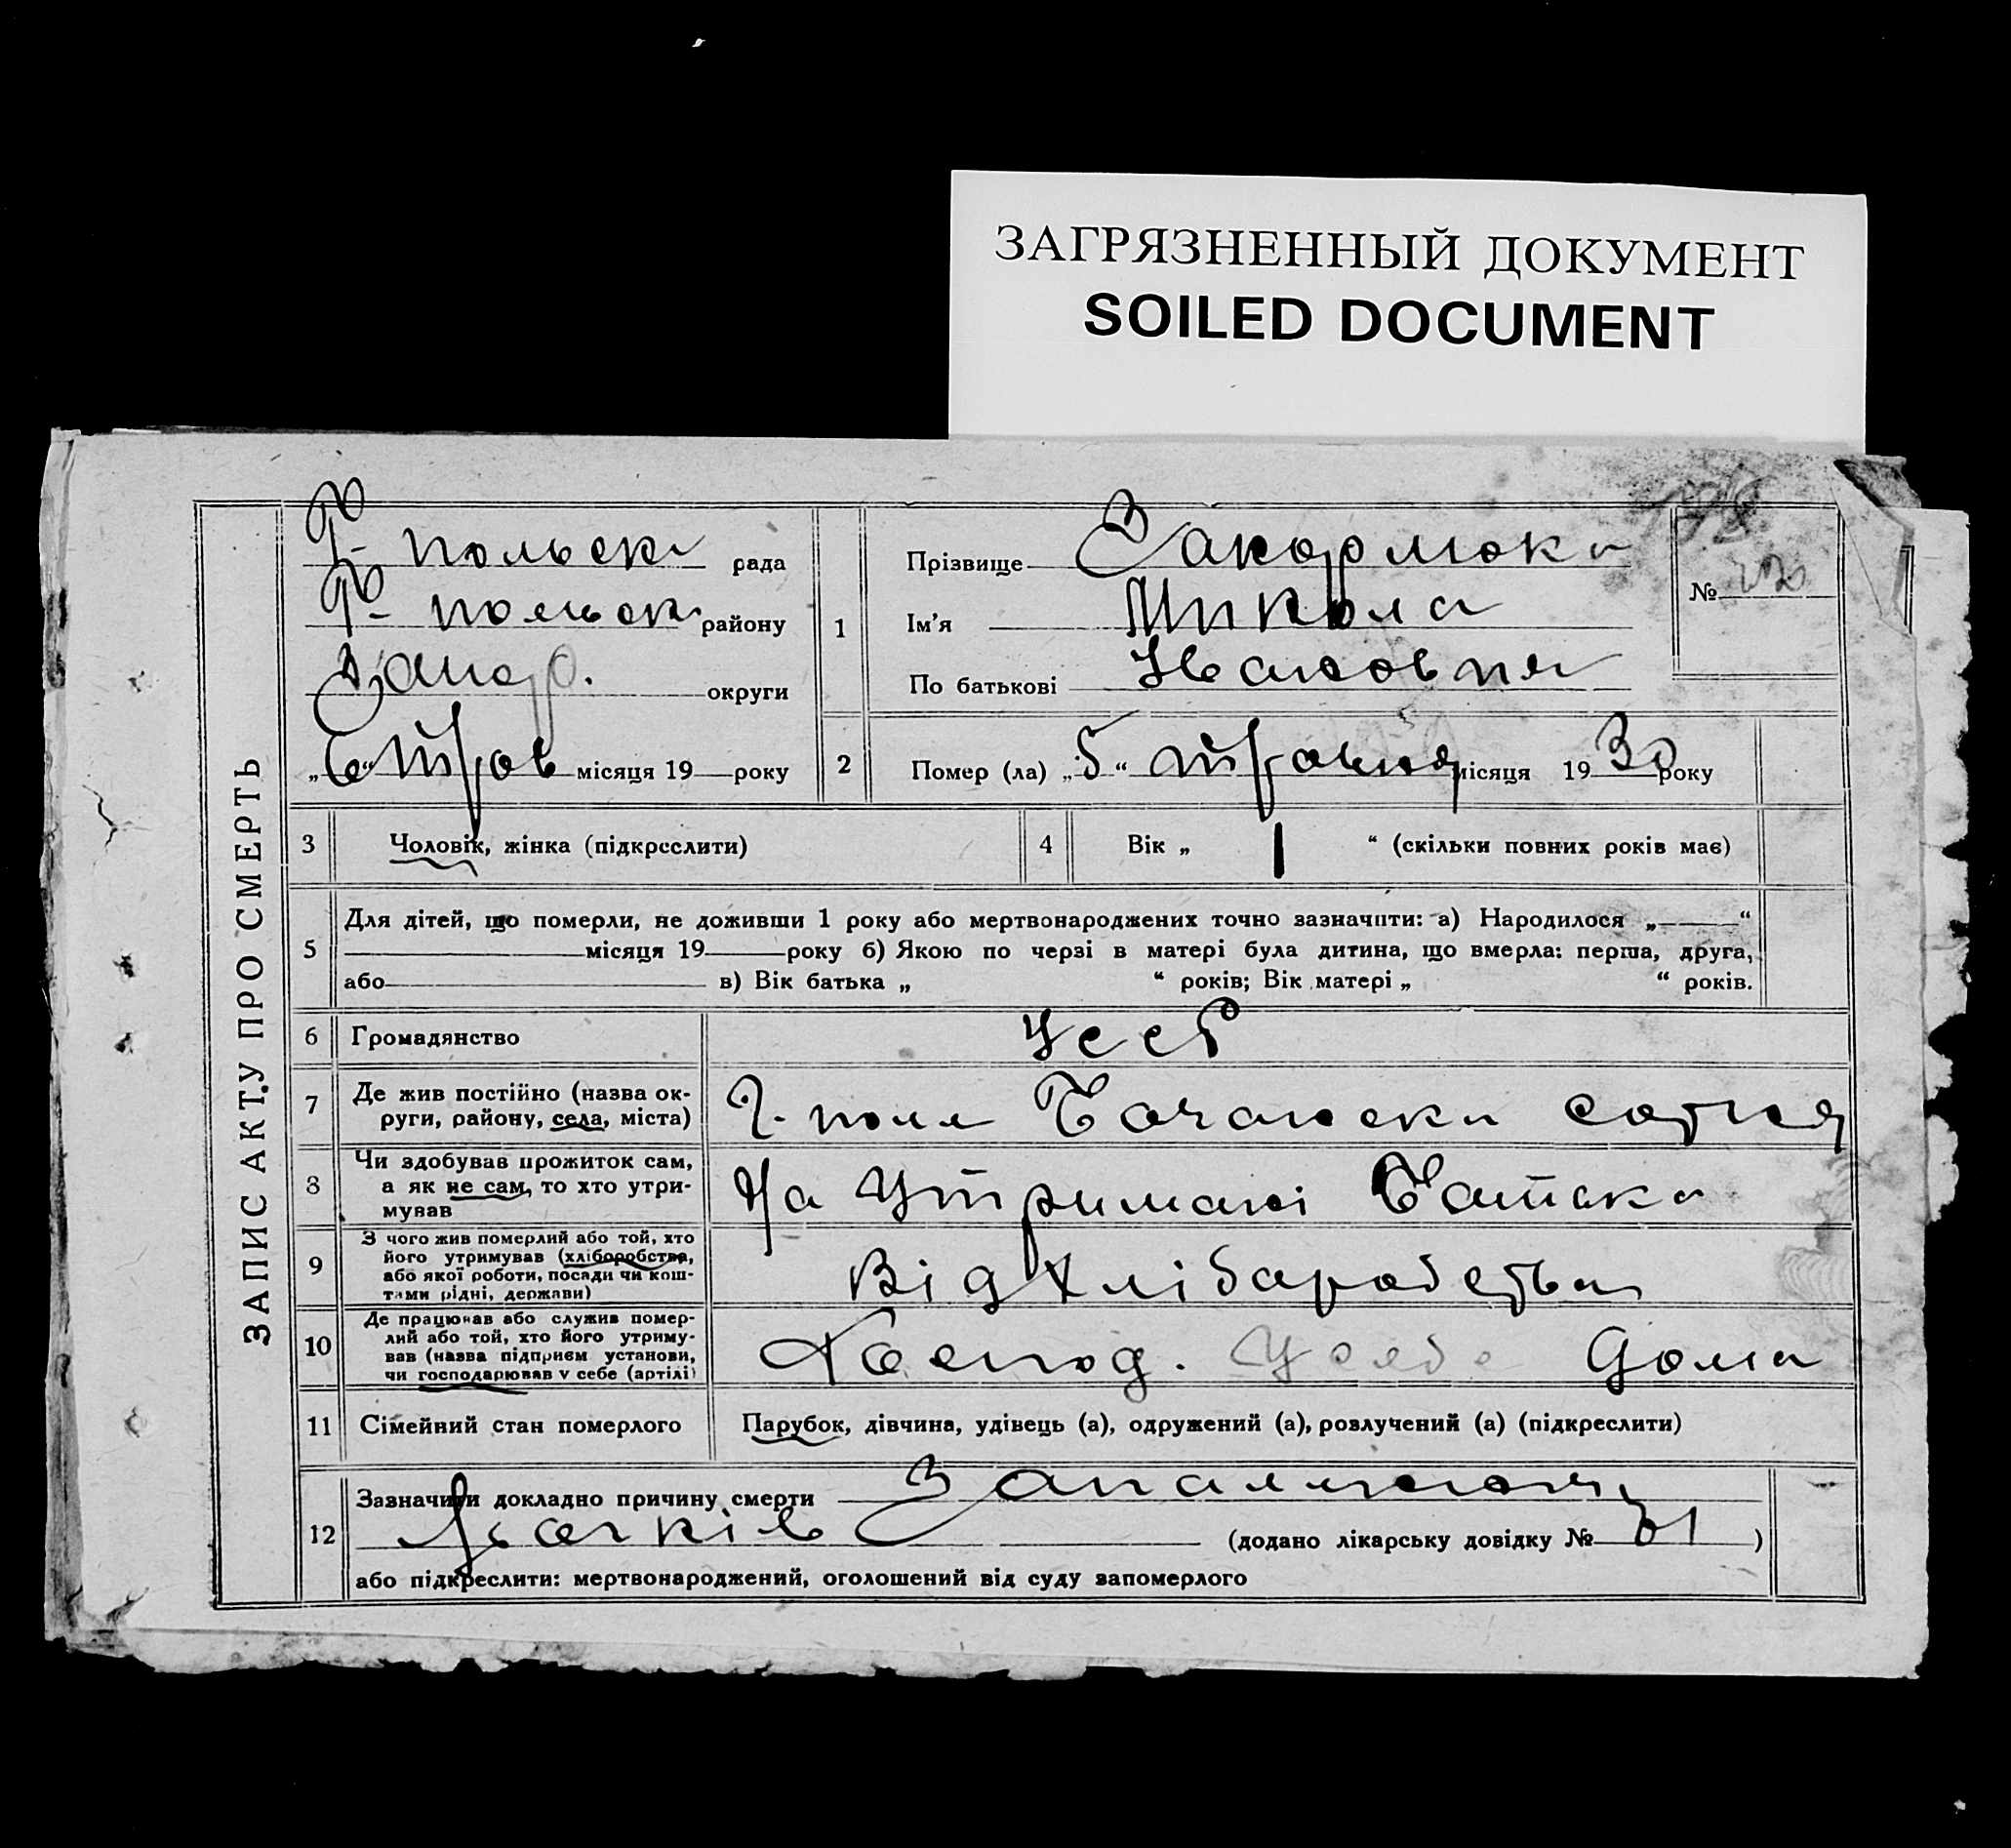 ЗАГРЯЗНЕННЫЙ ДОКУМЕНТ
SOILED DOCUMENT
ЗАПИС АКТУ ПРО СМЕРТЬ
польск рада
польск району
Запор. округи
„6“ трав місяця 19 року
1
Прізвище
Ім'я Микола
По батькові Іванович
№
2
Помер (ла) „5“ травня місяця 1930 року
3 Чоловік, жінка (підкреслити)
4 Вік „ 1 “ (скільки повних років має)
5
Для дітей, що померли, не доживши 1 року або мертвонароджених точно зазначити: а) Народилося „ “
місяця 19 року б) Якою по черзі в матері була дитина, що вмерла: перша, друга,
або в) Вік батька „ “ років; Вік матері „ “ років.
6 Громадянство УССР
7 Де жив постійно (назва ок-
руги, району, села, міста)
Г. поле сотня
8 Чи здобував прожиток сам,
а як не сам, то хто утри-
мував
На Утримані Батька
9 З чого жив померлий або той, хто
його утримував (хліборобства,
або якої роботи, посади чи кош-
тами рідні, держави)
Від Хліборобства
10 Де працював або служив помер-
лий або той, хто його утриму-
вав (назва підприєм установи,
чи господарював у себе (артілі)
Господ. Усебе дома
11 Сімейний стан померлого Парубок, дівчина, удівець (а), одружений (а), розлучений (а) (підкреслити)
12 Зазначити докладно причину смерти Запалення
(додано лікарську довідку № 31 )
або підкреслити: мертвонароджений, оголошений від суду запомерлого